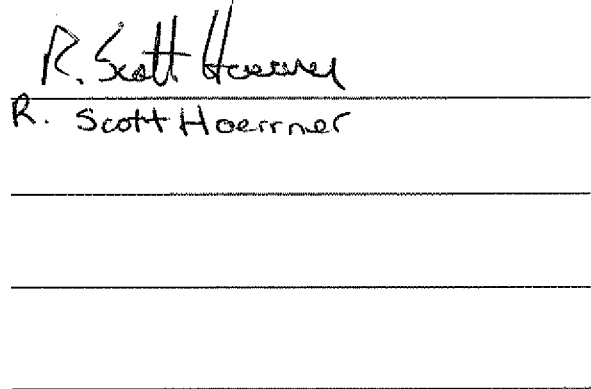 R. Scott Hoerrner
R. Scott Hoerrner